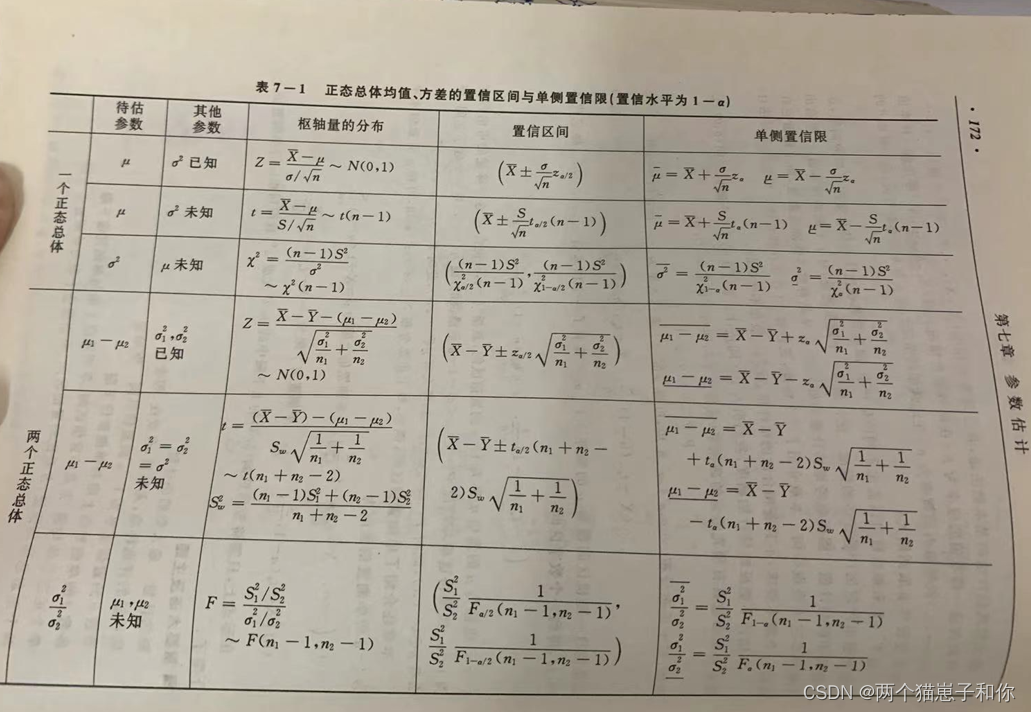 表 7-1 正态总体均值、方差的置信区间与单侧置信限(置信水平为 1-α)
· 172 ·
第七章 参数估计
待估参数 其他参数 枢轴量的分布 置信区间 单侧置信限
一个正态总体
μ σ² 已知 Z = (X̄-μ)/(σ/√n) ~ N(0,1) (X̄ ± σ/√n z_{α/2}) μ̄ = X̄ + σ/√n z_α μ̲ = X̄ - σ/√n z_α
μ σ² 未知 t = (X̄-μ)/(S/√n) ~ t(n-1) (X̄ ± S/√n t_{α/2}(n-1)) μ̄ = X̄ + S/√n t_α(n-1) μ̲ = X̄ - S/√n t_α(n-1)
σ² μ 未知 χ² = (n-1)S²/σ²
~ χ²(n-1)
((n-1)S²/χ²_{α/2}(n-1), (n-1)S²/χ²_{1-α/2}(n-1))
σ̄² = (n-1)S²/χ²_{1-α}(n-1) σ̲² = (n-1)S²/χ²_α(n-1)
两个正态总体
μ₁-μ₂ σ₁²,σ₂² 已知
Z = (X̄-Ȳ-(μ₁-μ₂))/√(σ₁²/n₁ + σ₂²/n₂)
~ N(0,1)
(X̄-Ȳ ± z_{α/2} √(σ₁²/n₁ + σ₂²/n₂))
\overline{μ₁-μ₂} = X̄-Ȳ+z_α √(σ₁²/n₁ + σ₂²/n₂)
\underline{μ₁-μ₂} = X̄-Ȳ-z_α √(σ₁²/n₁ + σ₂²/n₂)
μ₁-μ₂ σ₁² = σ₂²
= σ²
未知
t = ((X̄-Ȳ)-(μ₁-μ₂))/(S_w √(1/n₁ + 1/n₂))
~ t(n₁+n₂-2)
S_w² = ((n₁-1)S₁²+(n₂-1)S₂²)/(n₁+n₂-2)
(X̄-Ȳ ± t_{α/2}(n₁+n₂-
2)S_w √(1/n₁ + 1/n₂))
\overline{μ₁-μ₂} = X̄-Ȳ
+t_α(n₁+n₂-2)S_w √(1/n₁ + 1/n₂)
\underline{μ₁-μ₂} = X̄-Ȳ
-t_α(n₁+n₂-2)S_w √(1/n₁ + 1/n₂)
σ₁²/σ₂² μ₁,μ₂
未知
F = (S₁²/S₂²)/(σ₁²/σ₂²)
~ F(n₁-1,n₂-1)
(S₁²/S₂² 1/F_{α/2}(n₁-1,n₂-1),
S₁²/S₂² 1/F_{1-α/2}(n₁-1,n₂-1))
\overline{σ₁²/σ₂²} = S₁²/S₂² 1/F_{1-α}(n₁-1,n₂-1)
\underline{σ₁²/σ₂²} = S₁²/S₂² 1/F_α(n₁-1,n₂-1)
CSDN @两个猫崽子和你